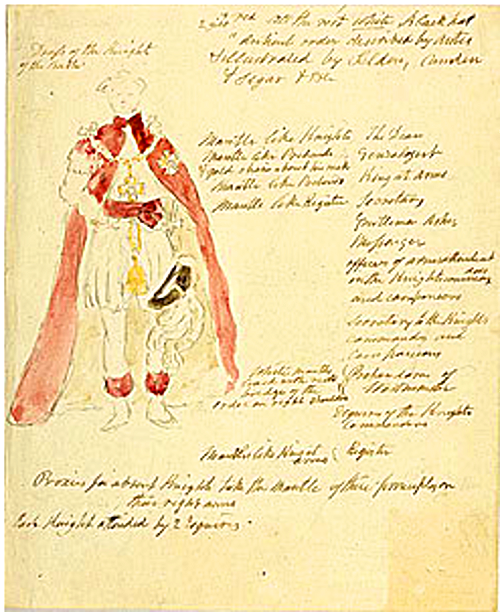 Dress of the Knight
of the Bath
red all the rest White & black hat
"Ancient order described by
& illustrated by Selden, Camden
& Segar &
Mantle like Knights The Dean
Mantle like Prebends Genealogist
& gold chain about his neck
King at Arms
Mantle like
Mantle like Register Secretary
Gentleman Usher
Messenger
officers of arms attendant
on the Knights commanders
and companions
Secretary to the Knights
commanders and
Companions
white mantle
Prebendaries of
Westminster
badge of the
order on right shoulder
Esquires of the Knights
Commanders
Mantle like King at
arms Register
Proxies for absent Knights take the Mantle of their principles on
their right arms
Each Knight attended by 2 Esquires.